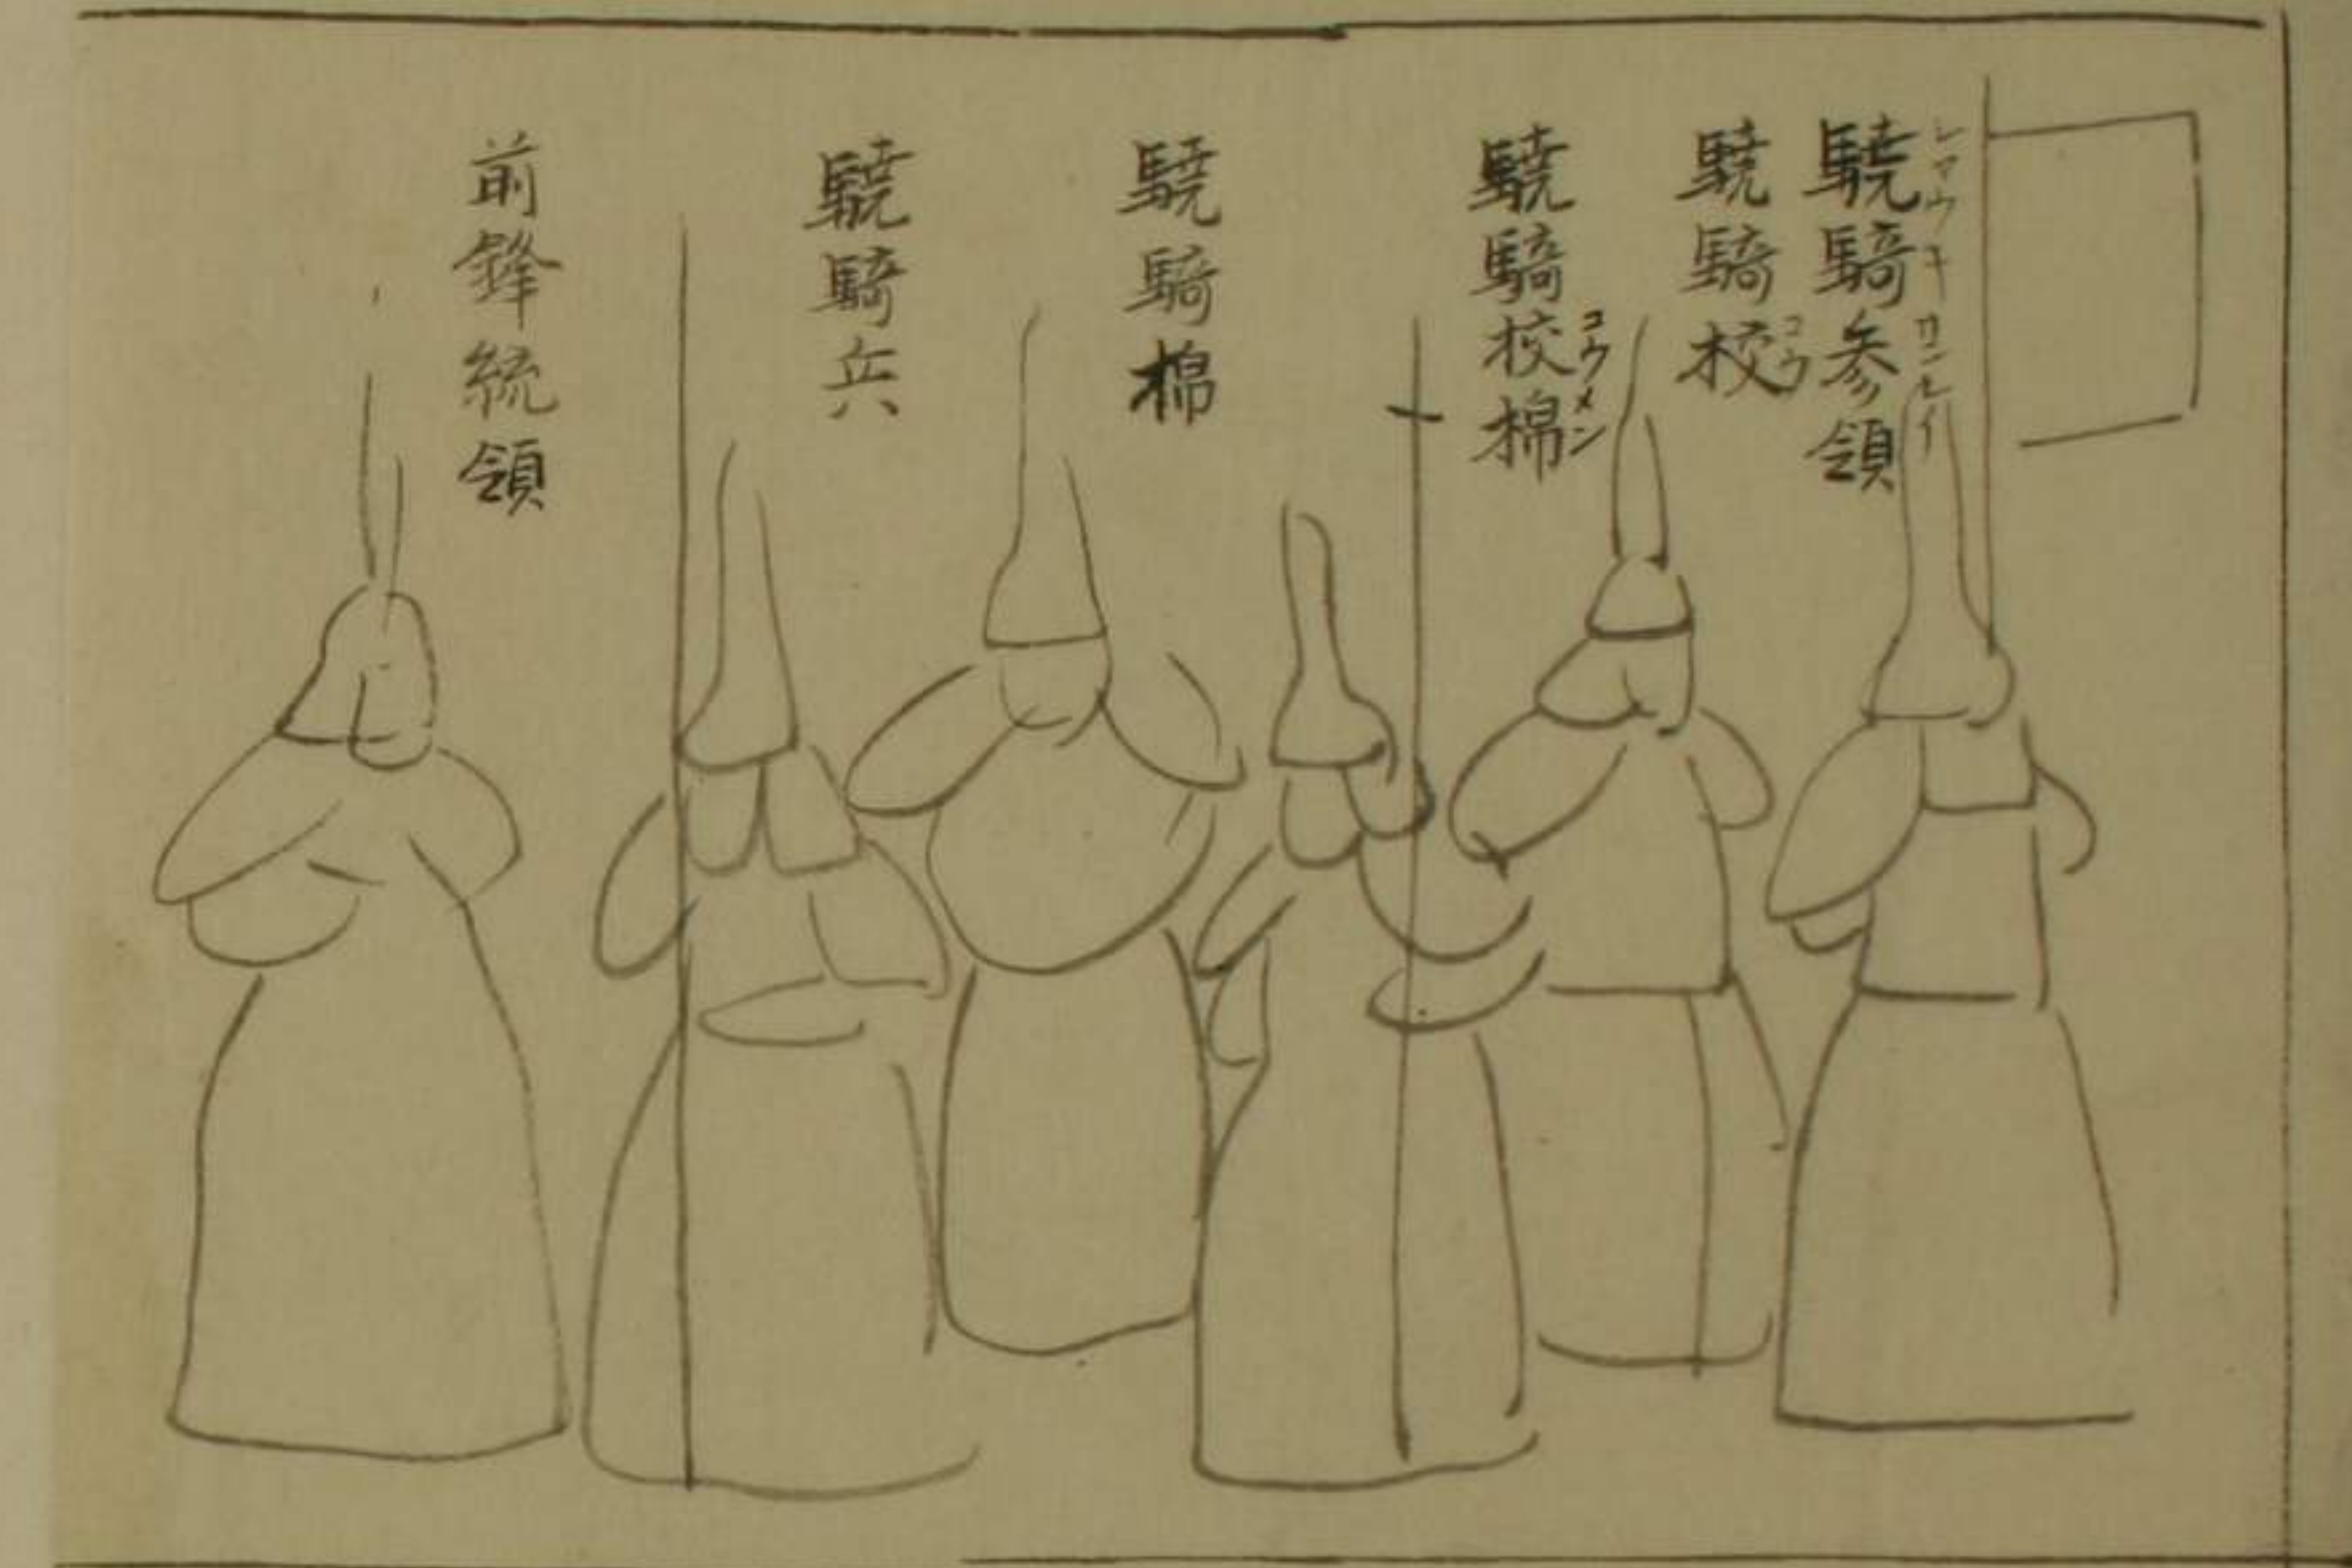 驍騎参領
シャウキサンレイ
驍騎校
コウ
驍騎校棉
コウメン
驍騎棉
驍騎兵
前鋒統領